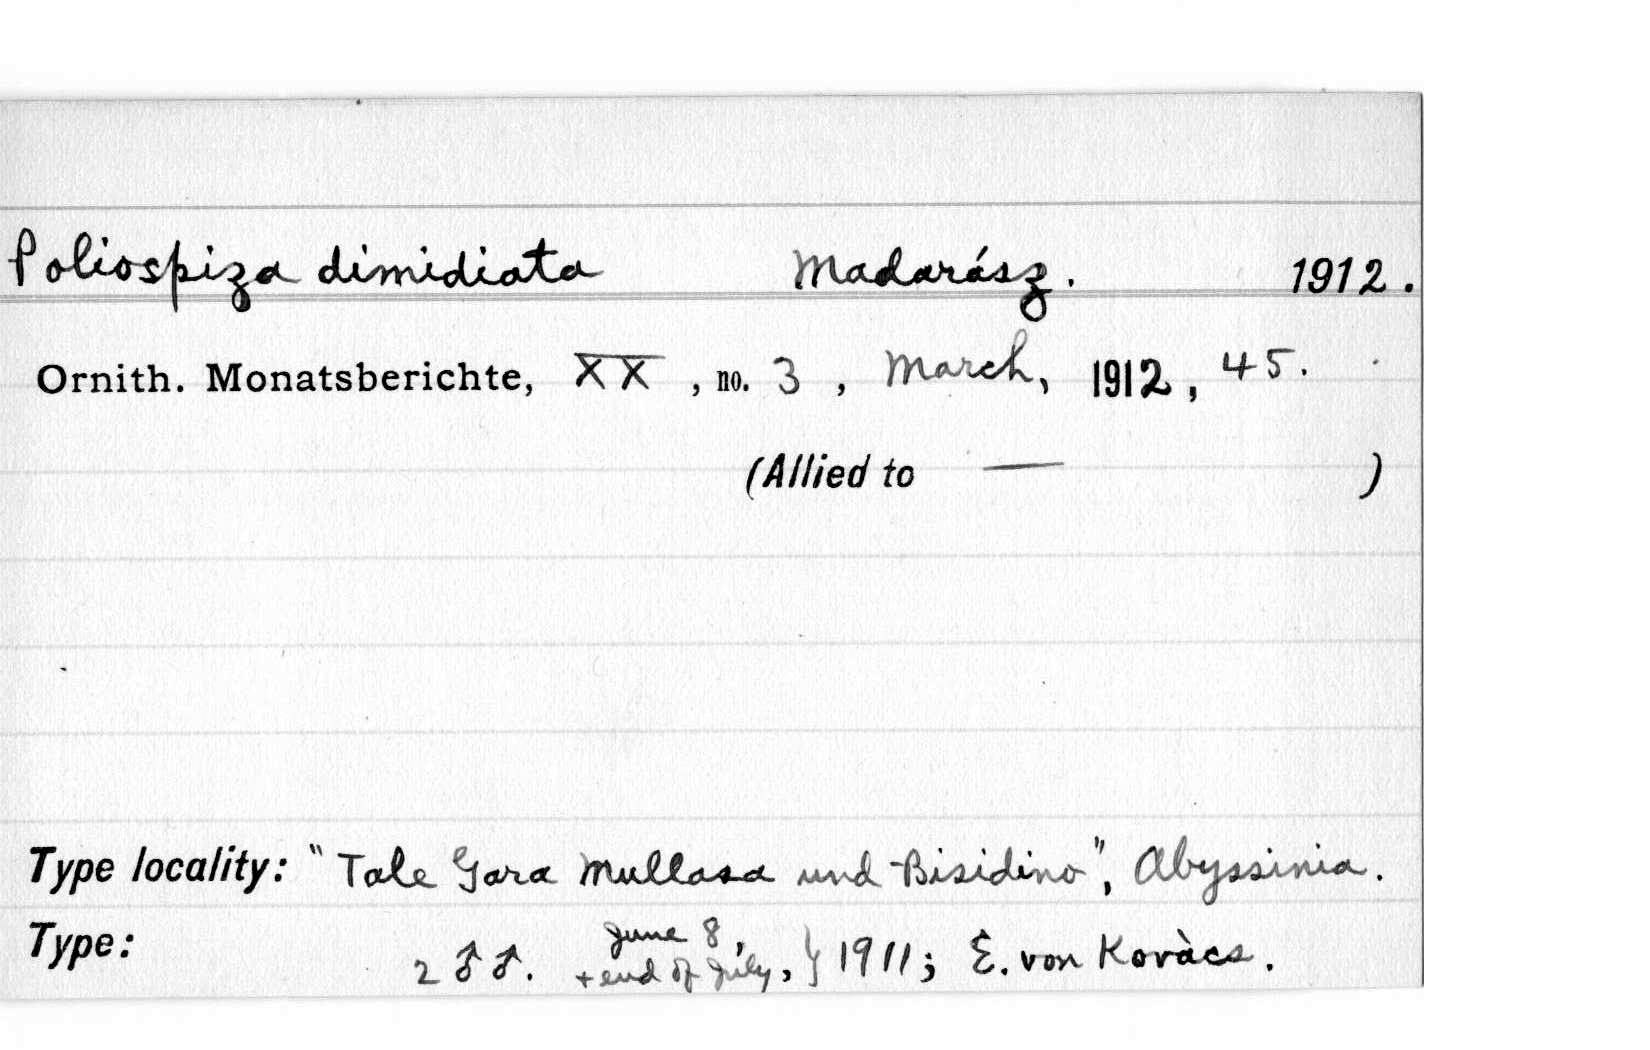 Poliospiza dimidiata Madarász. 1912.
Ornith. Monatsberichte, XX, no. 3, March, 1912, 45.
(Allied to — )
Type locality: "Tale Gara Mullasa und Bisidino", Abyssinia.
Type: 2 ♂♂. June 8, + end of July, } 1911; E. von Kovàcs.